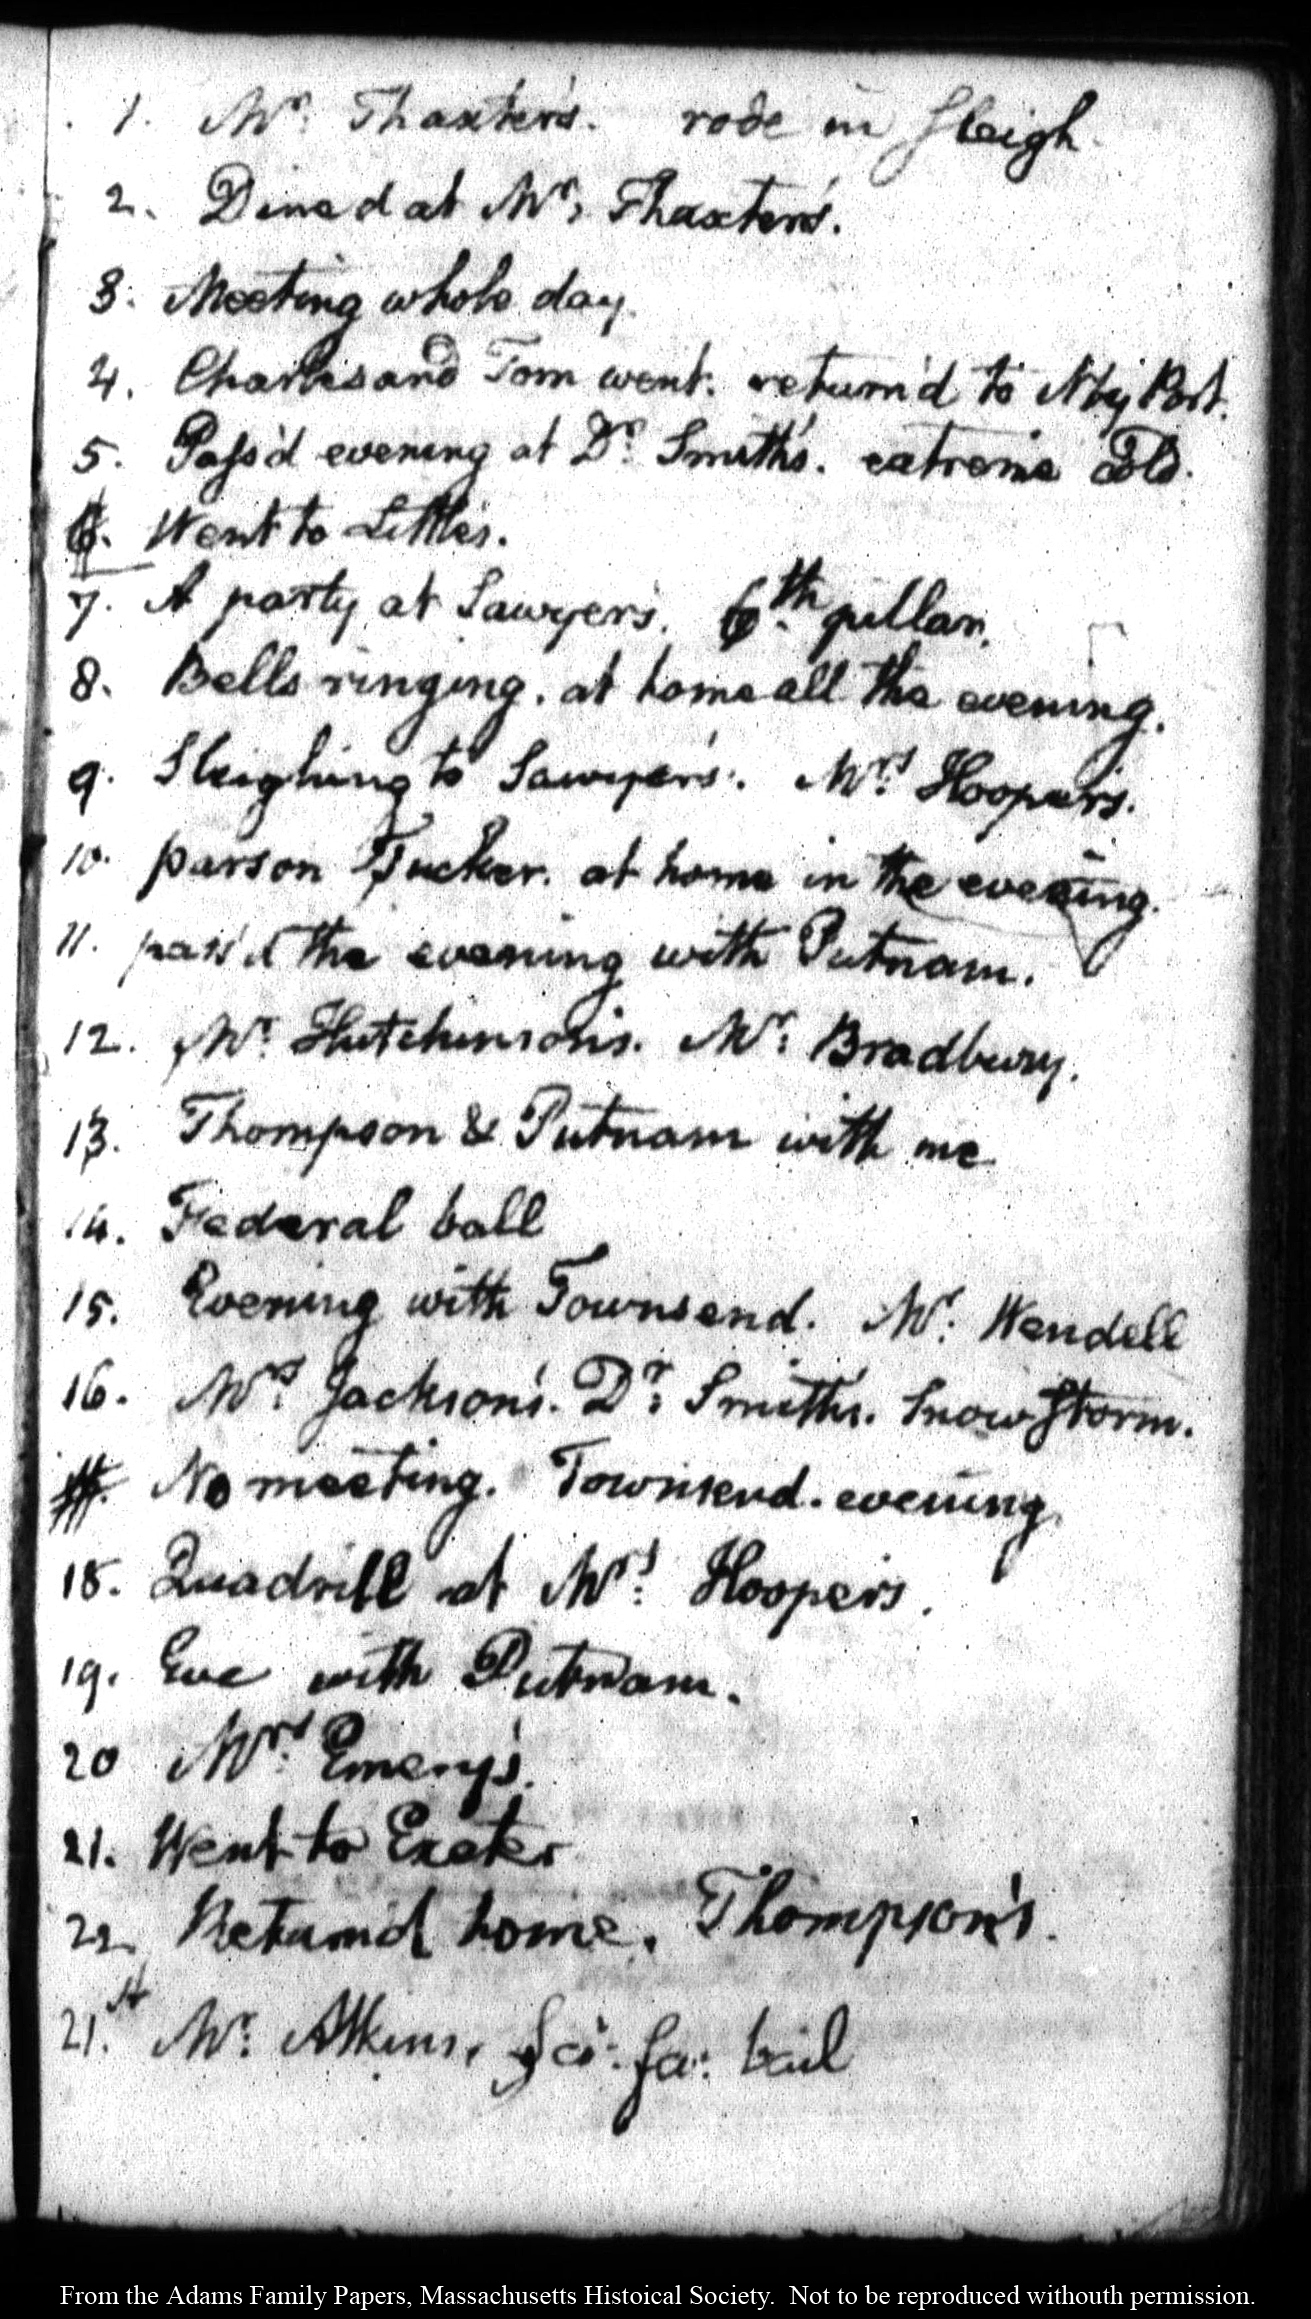 1. Mr. Thaxter's. rode in Sleigh.
2. Dined at Mr. Thaxter's.
3. Meeting whole day.
4. Charles and Tom went. return'd to Nby Port.
5. Pass'd evening at Dr. Smith's. extreme Cold.
6. Went to Little's.
7. A party at Sawyer's. 6th. pillar.
8. Bells ringing. at home all the evening.
9. Sleighing to Sawyer's. Mrs. Hooper's.
10. parson Tucker. at home in the evening.
11. pass'd the evening with Putnam.
12. Mr. Hutchinson's. Mr. Bradbury.
13. Thompson & Putnam with me
14. Federal ball
15. Evening with Townsend. Mr. Wendell
16. Mrs. Jackson's. Dr. Smith's. Snow Storm.
No meeting. Townsend. evening.
18. Quadrille at Mrs. Hooper's.
19. Eve with Putnam.
20 Mrs. Emery's.
21. Went to Exeter
22. Return'd home. Thompson's.
21. Mr. Atkins, Sci: fa: bail
From the Adams Family Papers, Massachusetts Histoical Society. Not to be reproduced withouth permission.